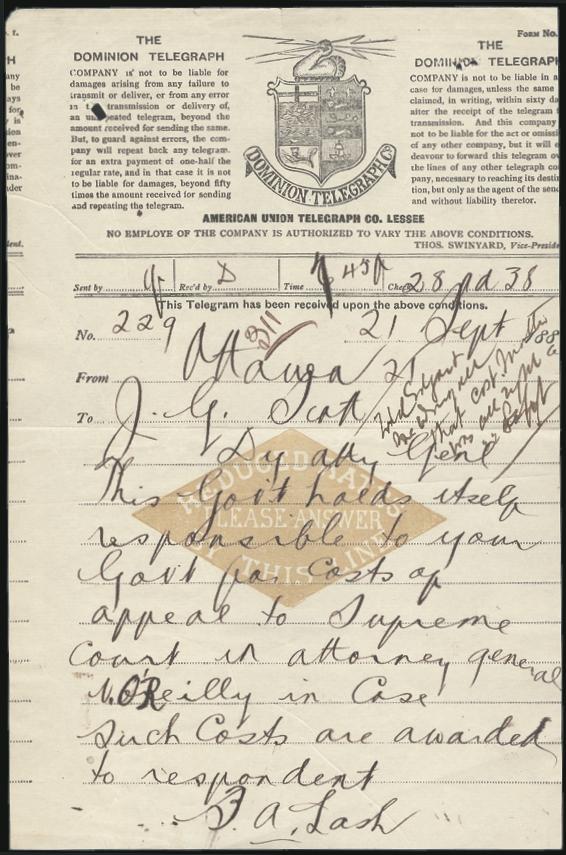 THE
DOMINION TELEGRAPH
COMPANY is not to be liable for
damages arising from any failure to
transmit or deliver, or from any error
in t transmission or delivery, of
an un eated telegram, beyond the
amount received for sending the same.
But, to guard against errors, the com-
pany will repeat back any telegram
for an extra payment of one-half the
regular rate, and in that case it is not
to be liable for damages, beyond fifty
times the amount received for sending
and repeating the telegram.
DOMINION TELEGRAPH CO.
FORM No.
THE
DOMINION TELEGRAPH
COMPANY is not to be liable in a
case for damages, unless the same
claimed, in writing, within sixty da
after the receipt of the telegram
transmission. And this company
not to be liable for the act or omissi
of any other company, but it will e
deavour to forward this telegram ov
the lines of any other telegraph co
pany, necessary to reaching its destin
tion, but only as the agent of the send
and without liability therefor.
AMERICAN UNION TELEGRAPH CO. LESSEE
NO EMPLOYE OF THE COMPANY IS AUTHORIZED TO VARY THE ABOVE CONDITIONS.
THOS. SWINYARD, Vice-Preside
Sent by Rec'd by D Time 45p Check 28 pd 38
This Telegram has been received upon the above conditions.
No. 229 311 21 Sept 188
From Ottawa 21
To J. G. Scott
Dy atty Genl
that cost in the
REDUCED RATES
PLEASE ANSWER
BY THIS LINE
This Govt holds itself
responsible to your
Govt for Costs of
appeal to Supreme
Court in attorney general
v. O'Reilly in Case
such Costs are awarded
to respondent
Z. A. Lash